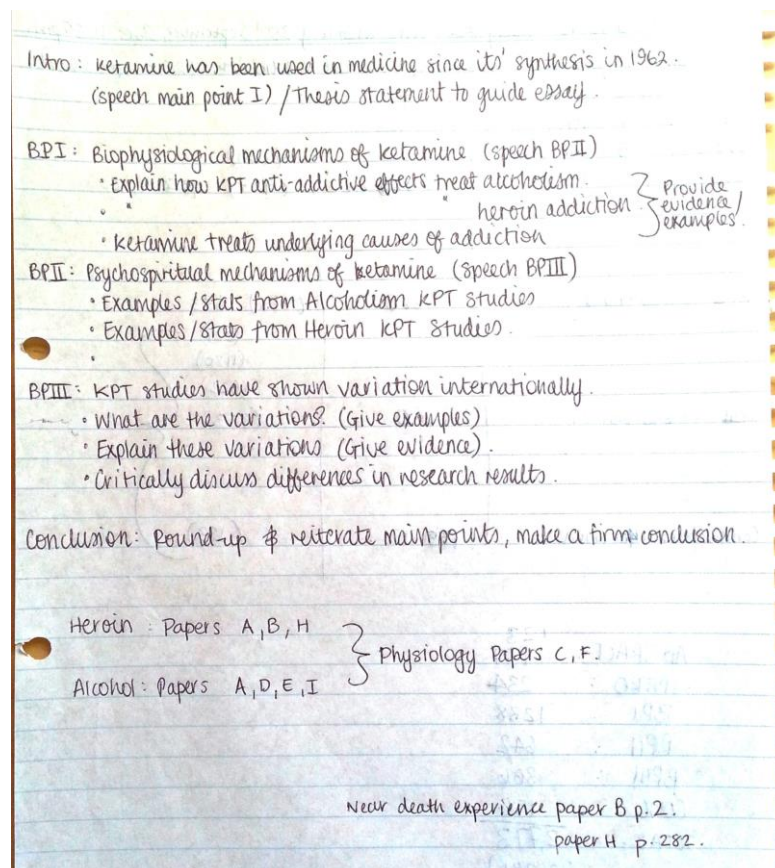 Intro: Ketamine has been used in medicine since its' synthesis in 1962.
(speech main point I) / Thesis statement to guide essay.
BPI: Biophysiological mechanisms of ketamine (speech BPII)
• Explain how KPT anti-addictive effects treat alcoholism.
• " " heroin addiction
• Ketamine treats underlying causes of addiction
Provide
evidence/
examples.
BPII: Psychospiritual mechanisms of ketamine (speech BPIII)
• Examples/stats from Alcoholism KPT studies
• Examples/stats from Heroin KPT studies.
•
BPIII: KPT studies have shown variation internationally.
• What are the variations? (Give examples)
• Explain these variations (Give evidence).
• Critically discuss differences in research results.
Conclusion: Round-up & reiterate main points, make a firm conclusion.
Heroin: Papers A, B, H
Physiology Papers C, F.
Alcohol: Papers A, D, E, I
Near death experience paper B p.2.
paper H p.282.